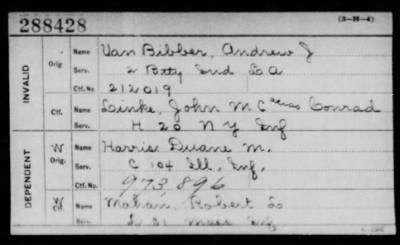 288428
(3-H-4)
INVALID
Orig.
Name Van Bibber, Andrew J
Serv. 2 Btty Ind L A
Ctf. No. 212019
Ctf.
Name Linke, John M C alias Conrad
Serv. H 20 N Y Inf
DEPENDENT
W Orig.
Name Harris Duane M.
Serv. C 104 Ill. Inf.
Ctf. No. 973,896
W Ctf.
Name Mahan, Robert
Serv. 31 Mass Inf